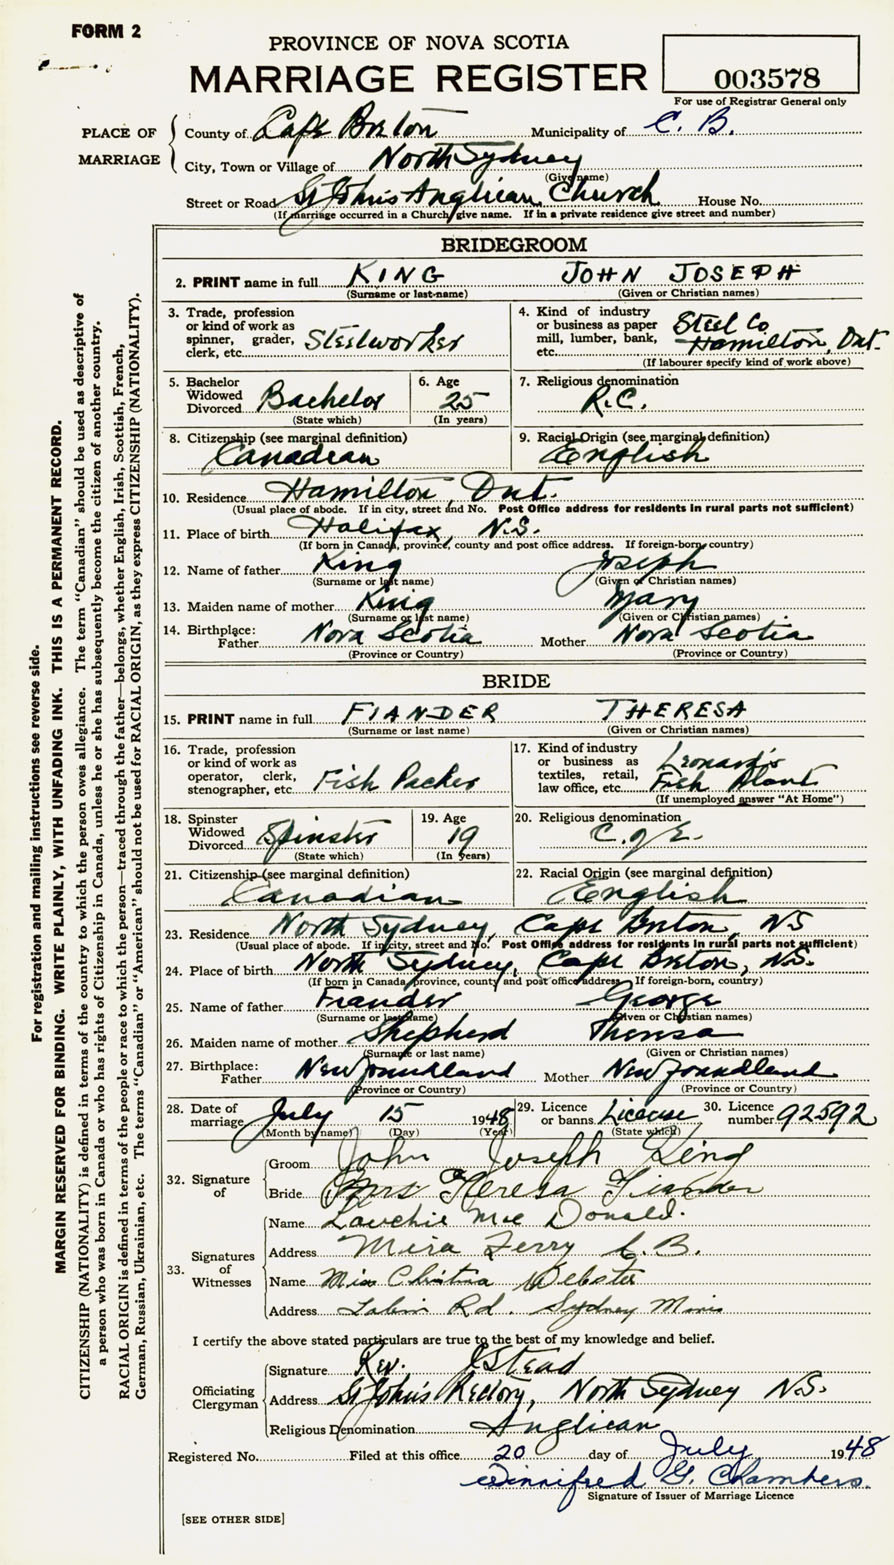 FORM 2
PROVINCE OF NOVA SCOTIA
MARRIAGE REGISTER
003578
For use of Registrar General only
PLACE OF MARRIAGE
County of Cape Breton Municipality of C. B.
City, Town or Village of North Sydney
(Give name)
Street or Road St John's Anglican Church House No.
(If marriage occurred in a Church give name. If in a private residence give street and number)
BRIDEGROOM
2. PRINT name in full KING JOHN JOSEPH
(Surname or last-name) (Given or Christian names)
3. Trade, profession or kind of work as spinner, grader, clerk, etc. Steelworker
4. Kind of industry or business as paper mill, lumber, bank, etc. Steel Co Hamilton, Ont.
(If labourer specify kind of work above)
5. Bachelor Widowed Divorced Bachelor
(State which)
6. Age 25
(In years)
7. Religious denomination
R.C.
8. Citizenship (see marginal definition)
Canadian
9. Racial Origin (see marginal definition)
English
10. Residence Hamilton, Ont.
(Usual place of abode. If in city, street and No. Post Office address for residents in rural parts not sufficient)
11. Place of birth Halifax, N.S.
(If born in Canada, province, county and post office address. If foreign-born, country)
12. Name of father King Joseph
(Surname or last name) (Given or Christian names)
13. Maiden name of mother King Mary
(Surname or last name) (Given or Christian names)
14. Birthplace: Father Nova Scotia Mother Nova Scotia
(Province or Country) (Province or Country)
BRIDE
15. PRINT name in full FIANDER THERESA
(Surname or last name) (Given or Christian names)
16. Trade, profession or kind of work as operator, clerk, stenographer, etc. Fish Packer
17. Kind of industry or business as textiles, retail, law office, etc. Leonard's Fish Plant
(If unemployed answer "At Home")
18. Spinster Widowed Divorced Spinster
(State which)
19. Age 19
(In years)
20. Religious denomination
C. of E.
21. Citizenship (see marginal definition)
Canadian
22. Racial Origin (see marginal definition)
English
23. Residence North Sydney, Cape Breton, NS
(Usual place of abode. If in city, street and No. Post Office address for residents in rural parts not sufficient)
24. Place of birth North Sydney, Cape Breton, N.S.
(If born in Canada province, county and post office address. If foreign-born, country)
25. Name of father Fiander George
(Surname or last name) (Given or Christian names)
26. Maiden name of mother Shepherd Theresa
(Surname or last name) (Given or Christian names)
27. Birthplace: Father Newfoundland Mother Newfoundland
(Province or Country) (Province or Country)
28. Date of marriage July 15 1948
(Month by name) (Day) (Year)
29. Licence or banns License
(State which)
30. Licence number 92592
32. Signature of
Groom John Joseph King
Bride Mrs Theresa Fiander
33. Signatures of Witnesses
Name Lauchie Mac Donald.
Address Mira Ferry C.B.
Name Miss Christina Webster
Address Rd. Sydney Mines
I certify the above stated particulars are true to the best of my knowledge and belief.
Officiating Clergyman
Signature Rev. J Stead
Address St John's Rectory, North Sydney N.S.
Religious Denomination Anglican
Registered No. Filed at this office 20 day of July 1948
Winnifred G. Chambers
Signature of Issuer of Marriage Licence
[SEE OTHER SIDE]
For registration and mailing instructions see reverse side.
MARGIN RESERVED FOR BINDING. WRITE PLAINLY, WITH UNFADING INK. THIS IS A PERMANENT RECORD.
CITIZENSHIP (NATIONALITY) is defined in terms of the country to which the person owes allegiance. The term "Canadian" should be used as descriptive of
a person who was born in Canada or who has rights of Citizenship in Canada, unless he or she has subsequently become the citizen of another country.
RACIAL ORIGIN is defined in terms of the people or race to which the person—traced through the father—belongs, whether English, Irish, Scottish, French,
German, Russian, Ukrainian, etc. The terms "Canadian" or "American" should not be used for RACIAL ORIGIN, as they express CITIZENSHIP (NATIONALITY).